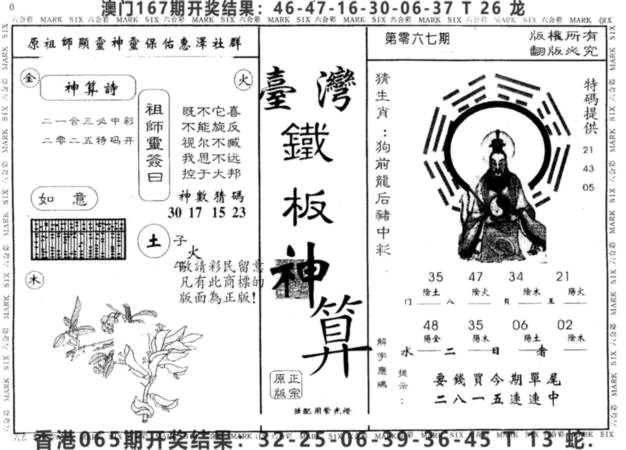 澳门167期开奖结果：46-47-16-30-06-37 T 26 龙
MARK SIX 六合彩
原祖師顯靈神靈保佑惠澤社群
金
火
神算詩
二一合三必中彩
二零二五特碼开
如意
祖師靈簽曰
既不它喜
不能旋反
视尔不臧
我思不远
控于大邦
神數猜碼
30 17 15 23
土
子
火
午
敬請彩民留意
凡有此商標的
版面為正版!
木
臺灣
鐵
板
神
算
正宗
原版
第零六七期
版權所有
翻版必究
猜生肖：狗前龍后豬中彩
特碼提供
21
43
05
35 47 34 21
陰土 陰火 陰木 陽火
門 八 貝 王
48 35 06 02
陽金 陽木 陽土 陰木
水 二 日 者
解字應碼
提示：
要錢買今期單尾
二八一五連連中
香港065期开奖结果：32-25-06-39-36-45 T 13 蛇.